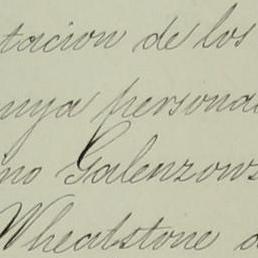 tacion de los
nya persona
no Galenzows
Wheatstone d